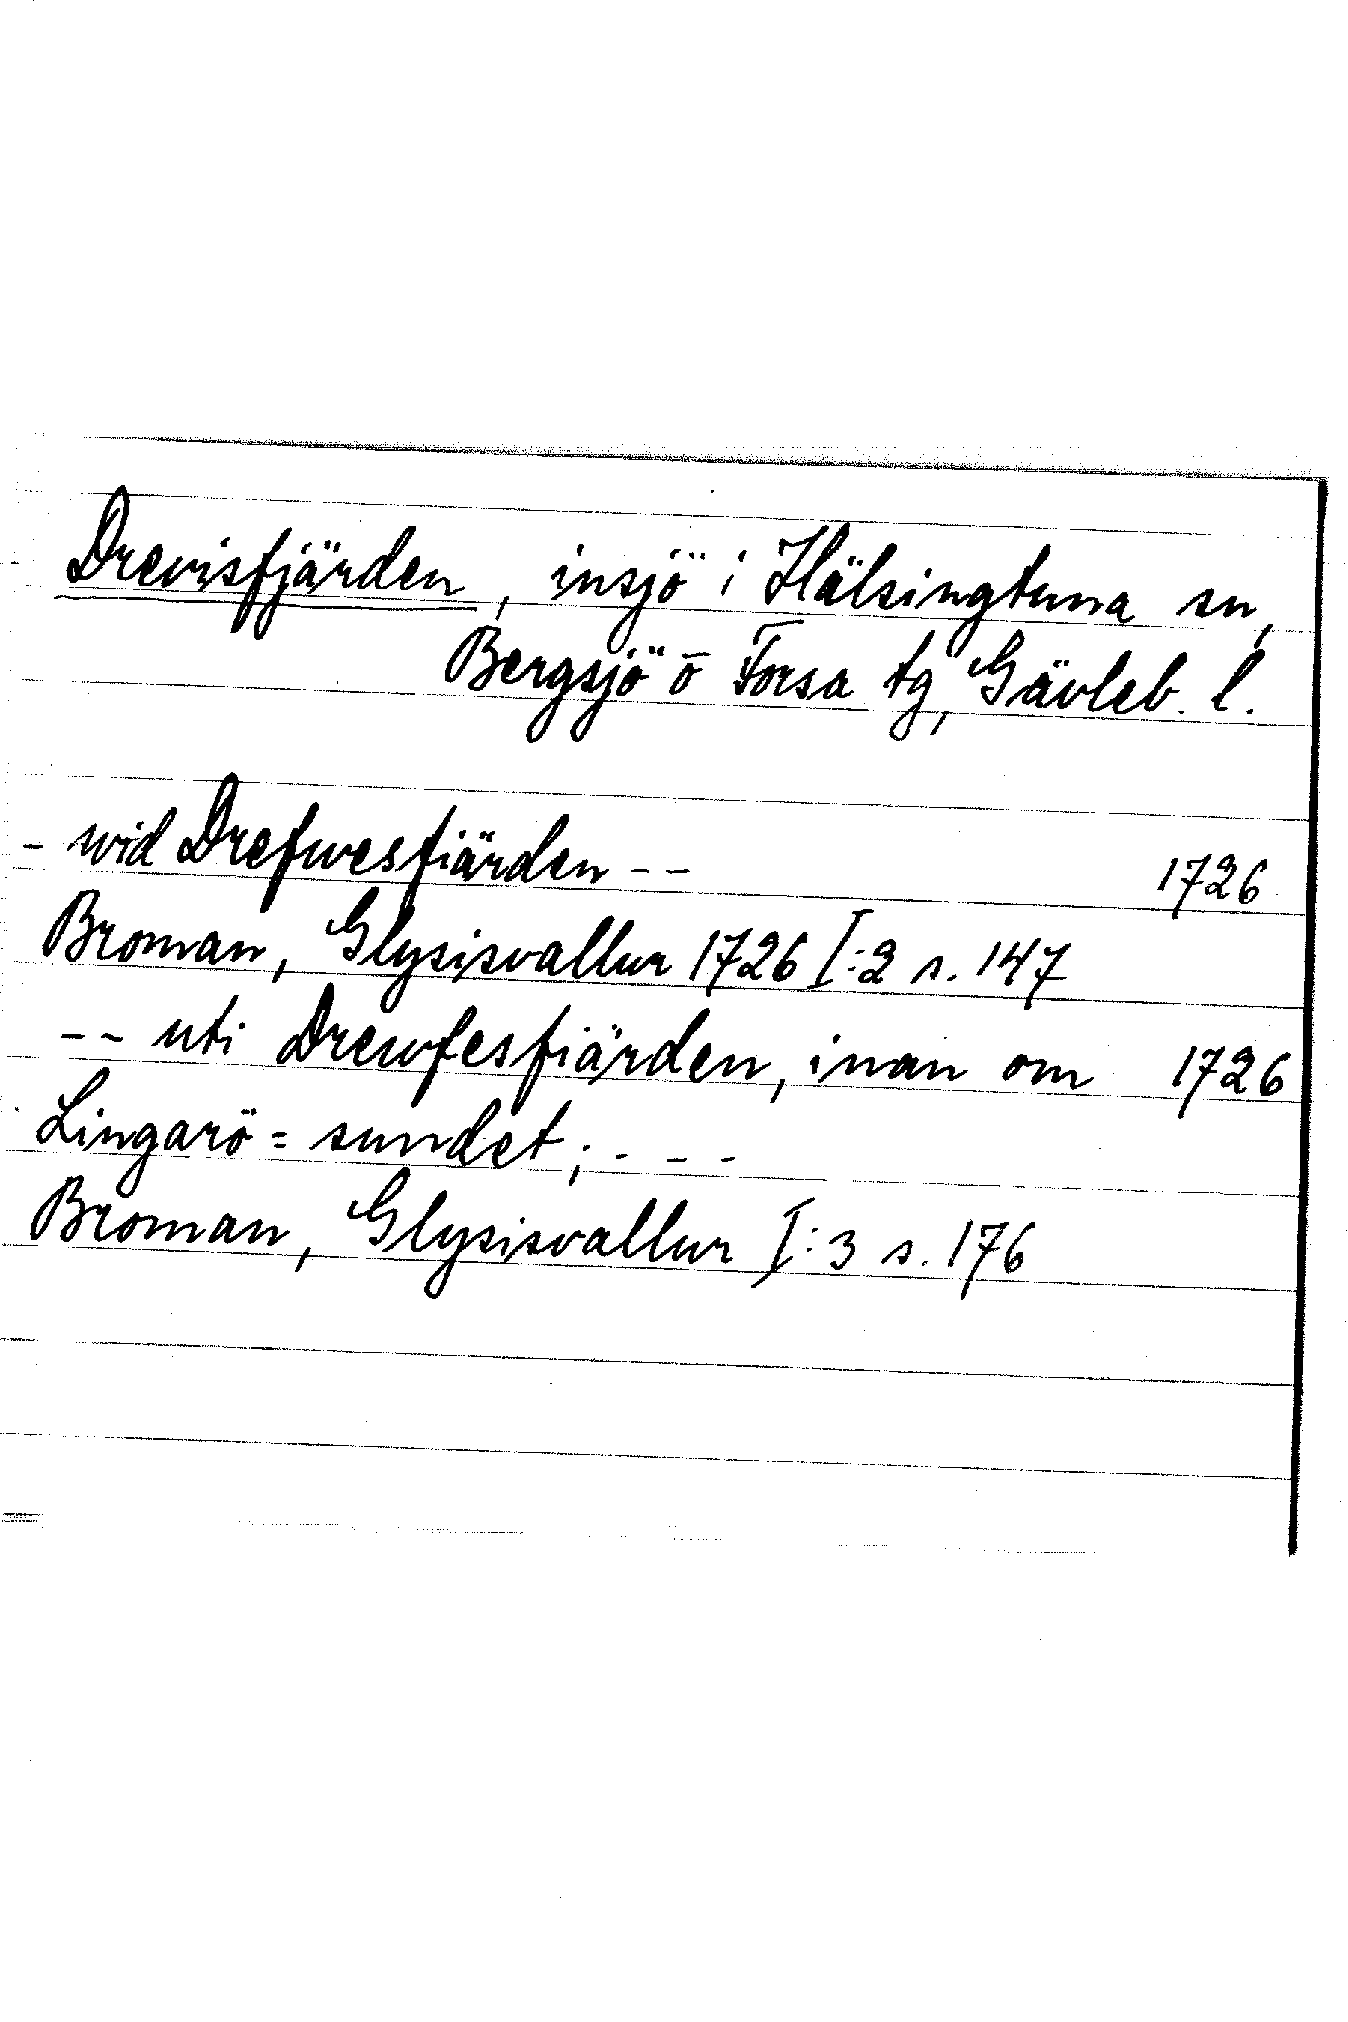 Drevisfjärden, insjö i Hälsingtuna sn,
Bergsjö o Forsa tg, Gävleb. l.
- wid Drefwesfiärden -- 1726
Broman, Glysisvallur 1726 I:2 s. 147
-- uti Drewfesfiärden, inan om 1726
Lingarö = sundet; - - -
Broman, Glysisvallur I:3 s. 176